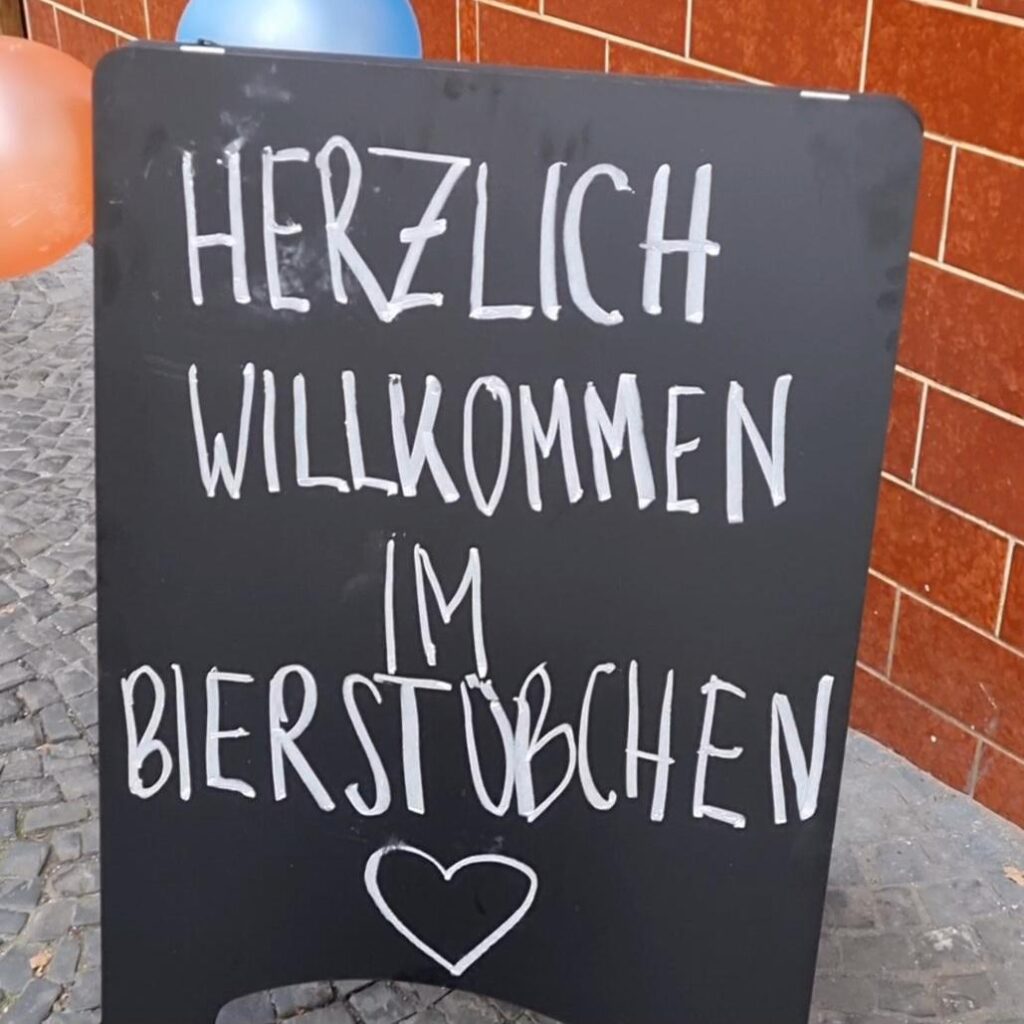 HERZLICH
WILLKOMMEN
IM
BIERSTÜBCHEN